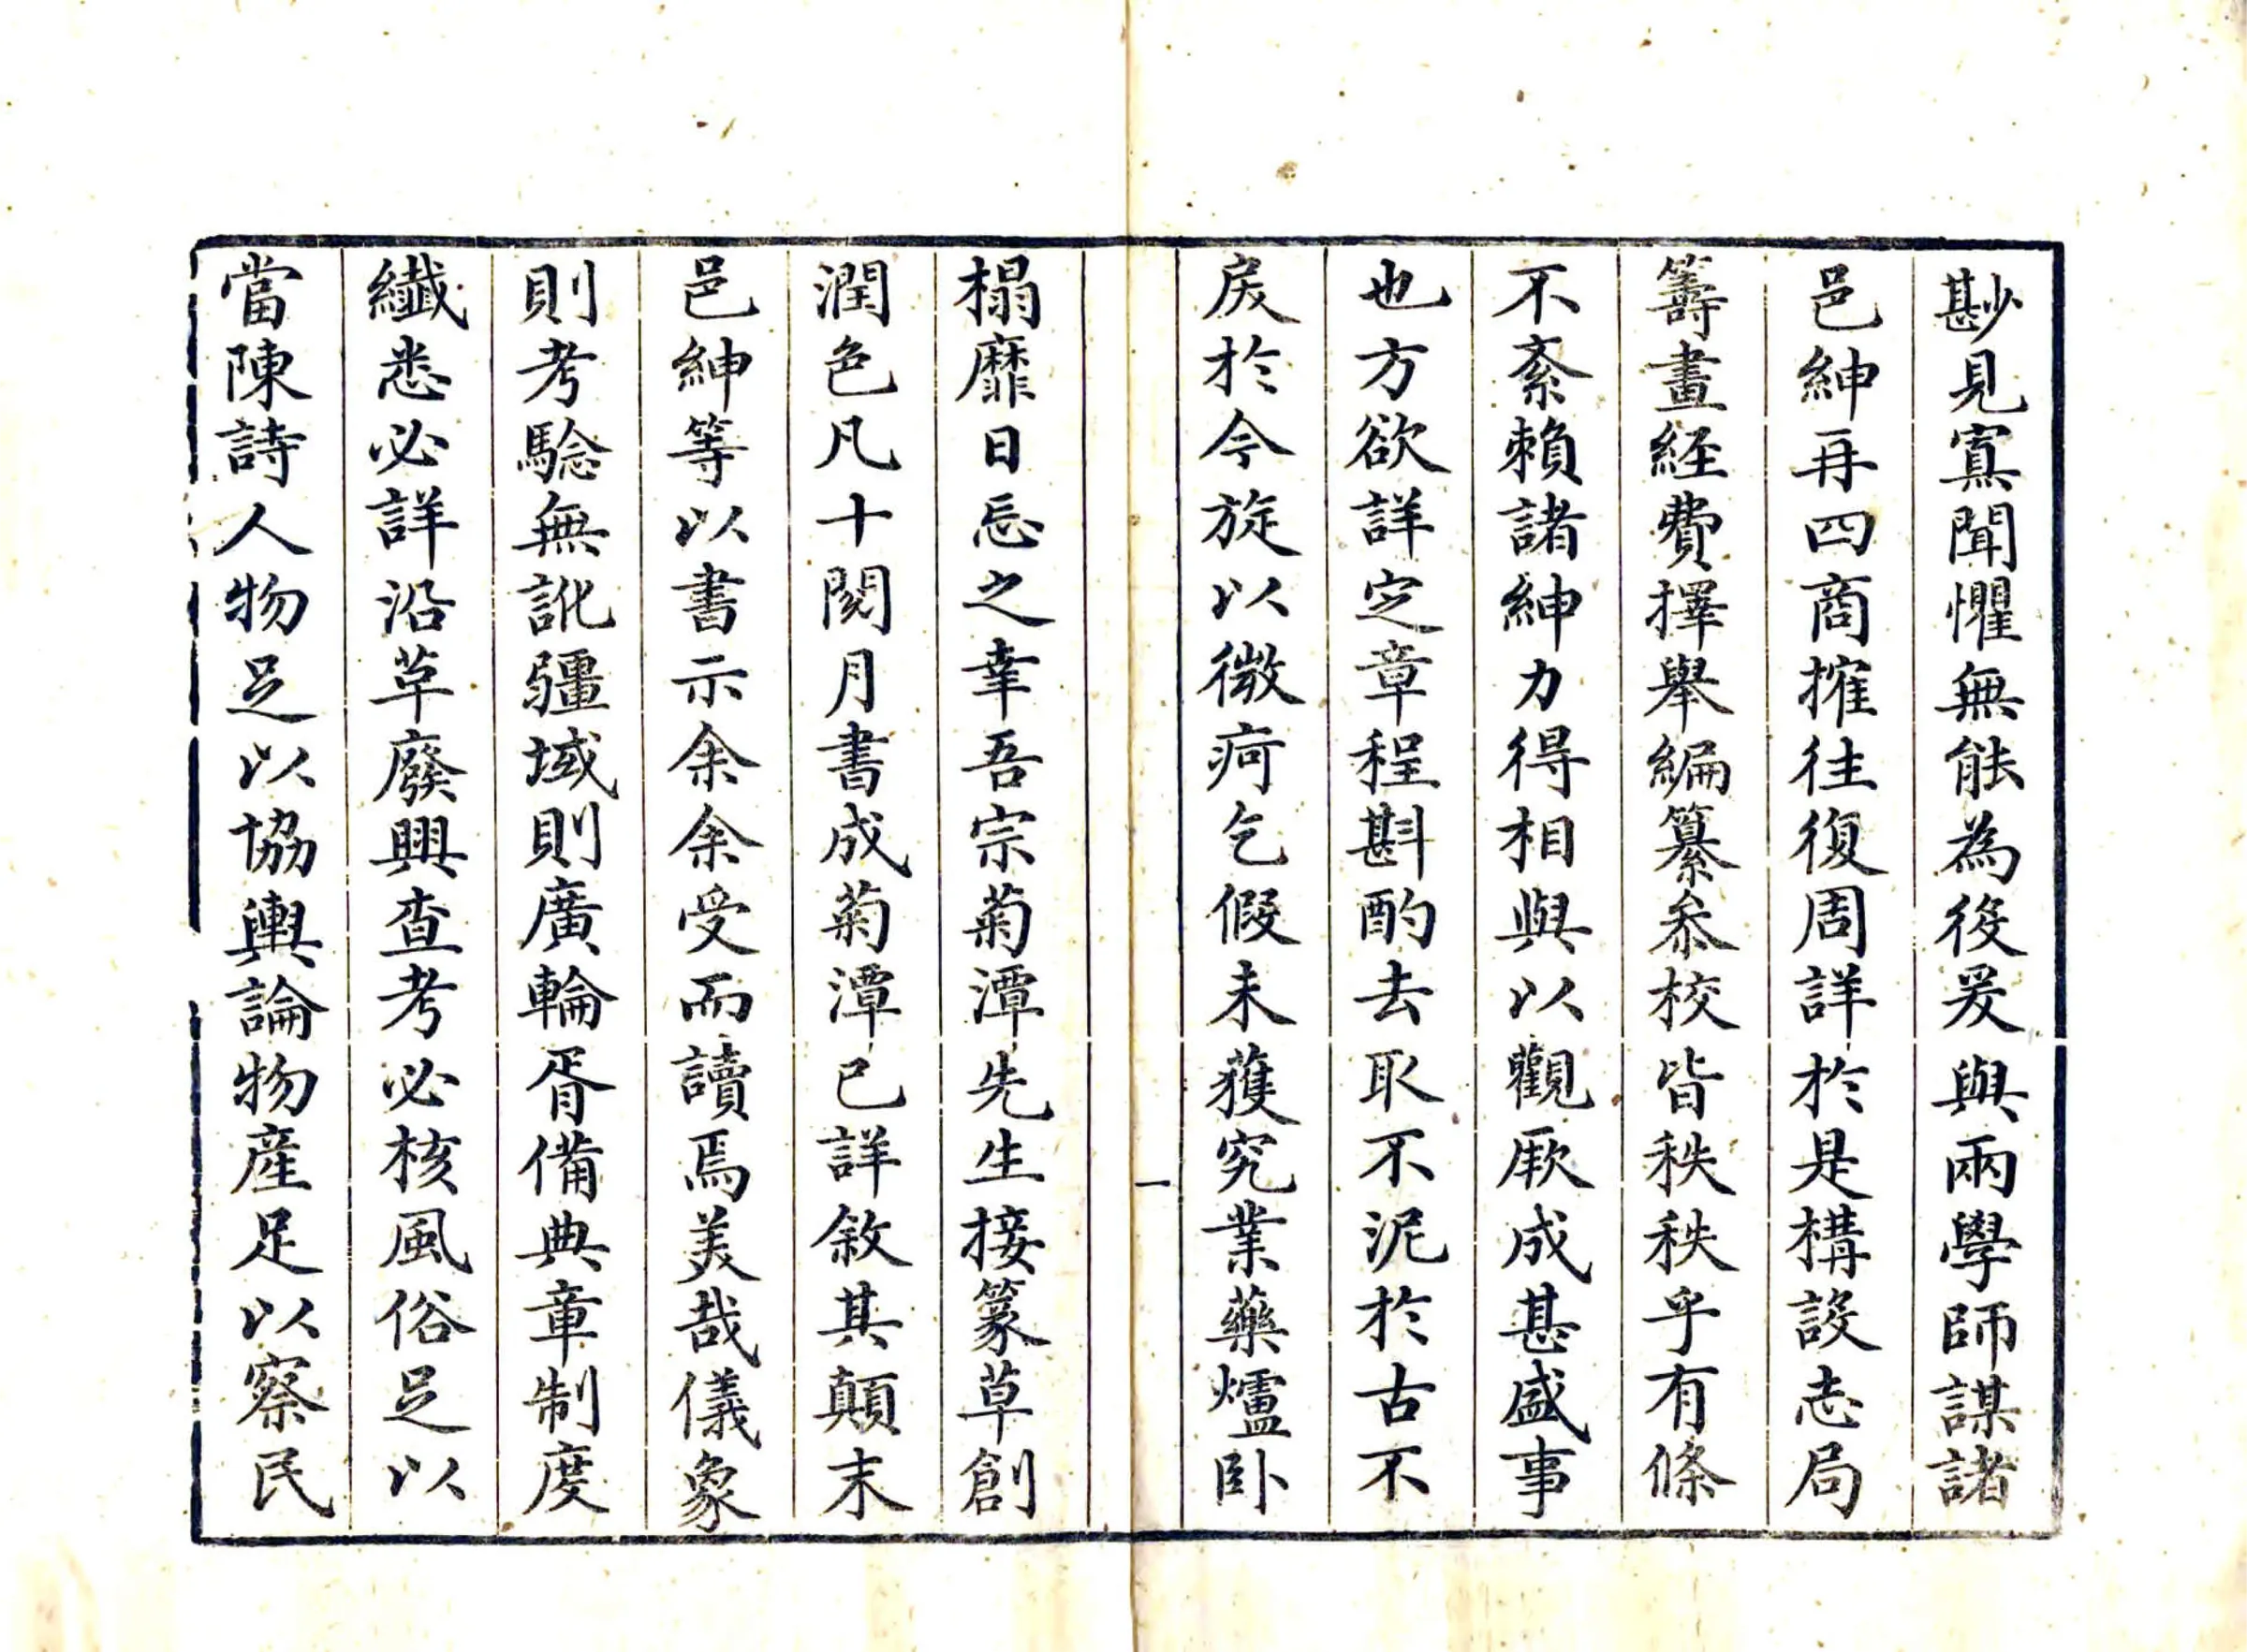 尠見寡聞懼無能為役爰與兩學師謀諸
邑紳再四商搉往復周詳於是構設志局
籌畫經費擇舉編纂叅校皆秩秩乎有條
不紊賴諸紳力得相與以觀厥成甚盛事
也方欲詳定章程斟酌去取不泥於古不
戾於今旋以微疴乞假未獲究業藥爐卧
一
榻靡日忘之幸吾宗菊潭先生接篆草創
潤色凡十閱月書成菊潭已詳敘其顛末
邑紳等以書示余余受而讀焉美哉儀象
則考驗無訛疆域則廣輪胥備典章制度
纖悉必詳沿革廢興查考必核風俗足以
當陳詩人物足以協輿論物產足以察民